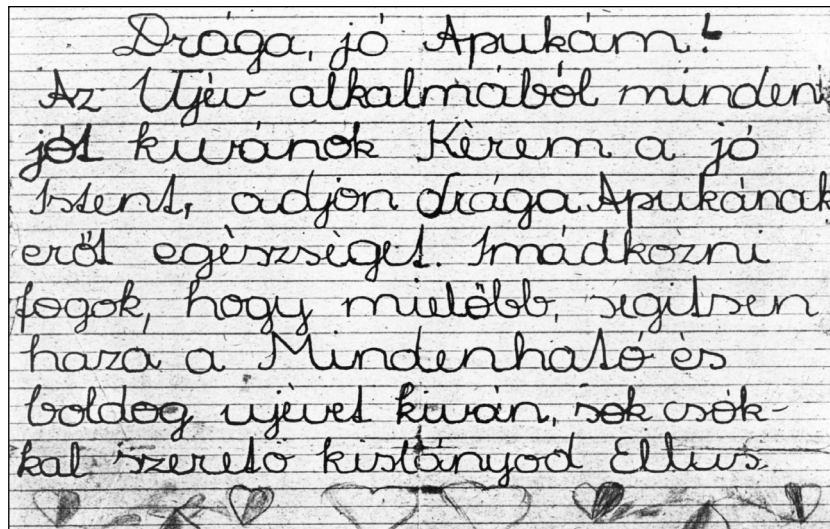 Drága, jó Apukám!
Az Ujév alkalmából minden
jót kivánok Kérem a jó
Istent, adjon drága Apukának
erőt egészséget. Imádkozni
fogok, hogy mielőbb, segitsen
haza a Mindenható és
boldog ujévet kiván, sok csók-
kal szerető kislányod